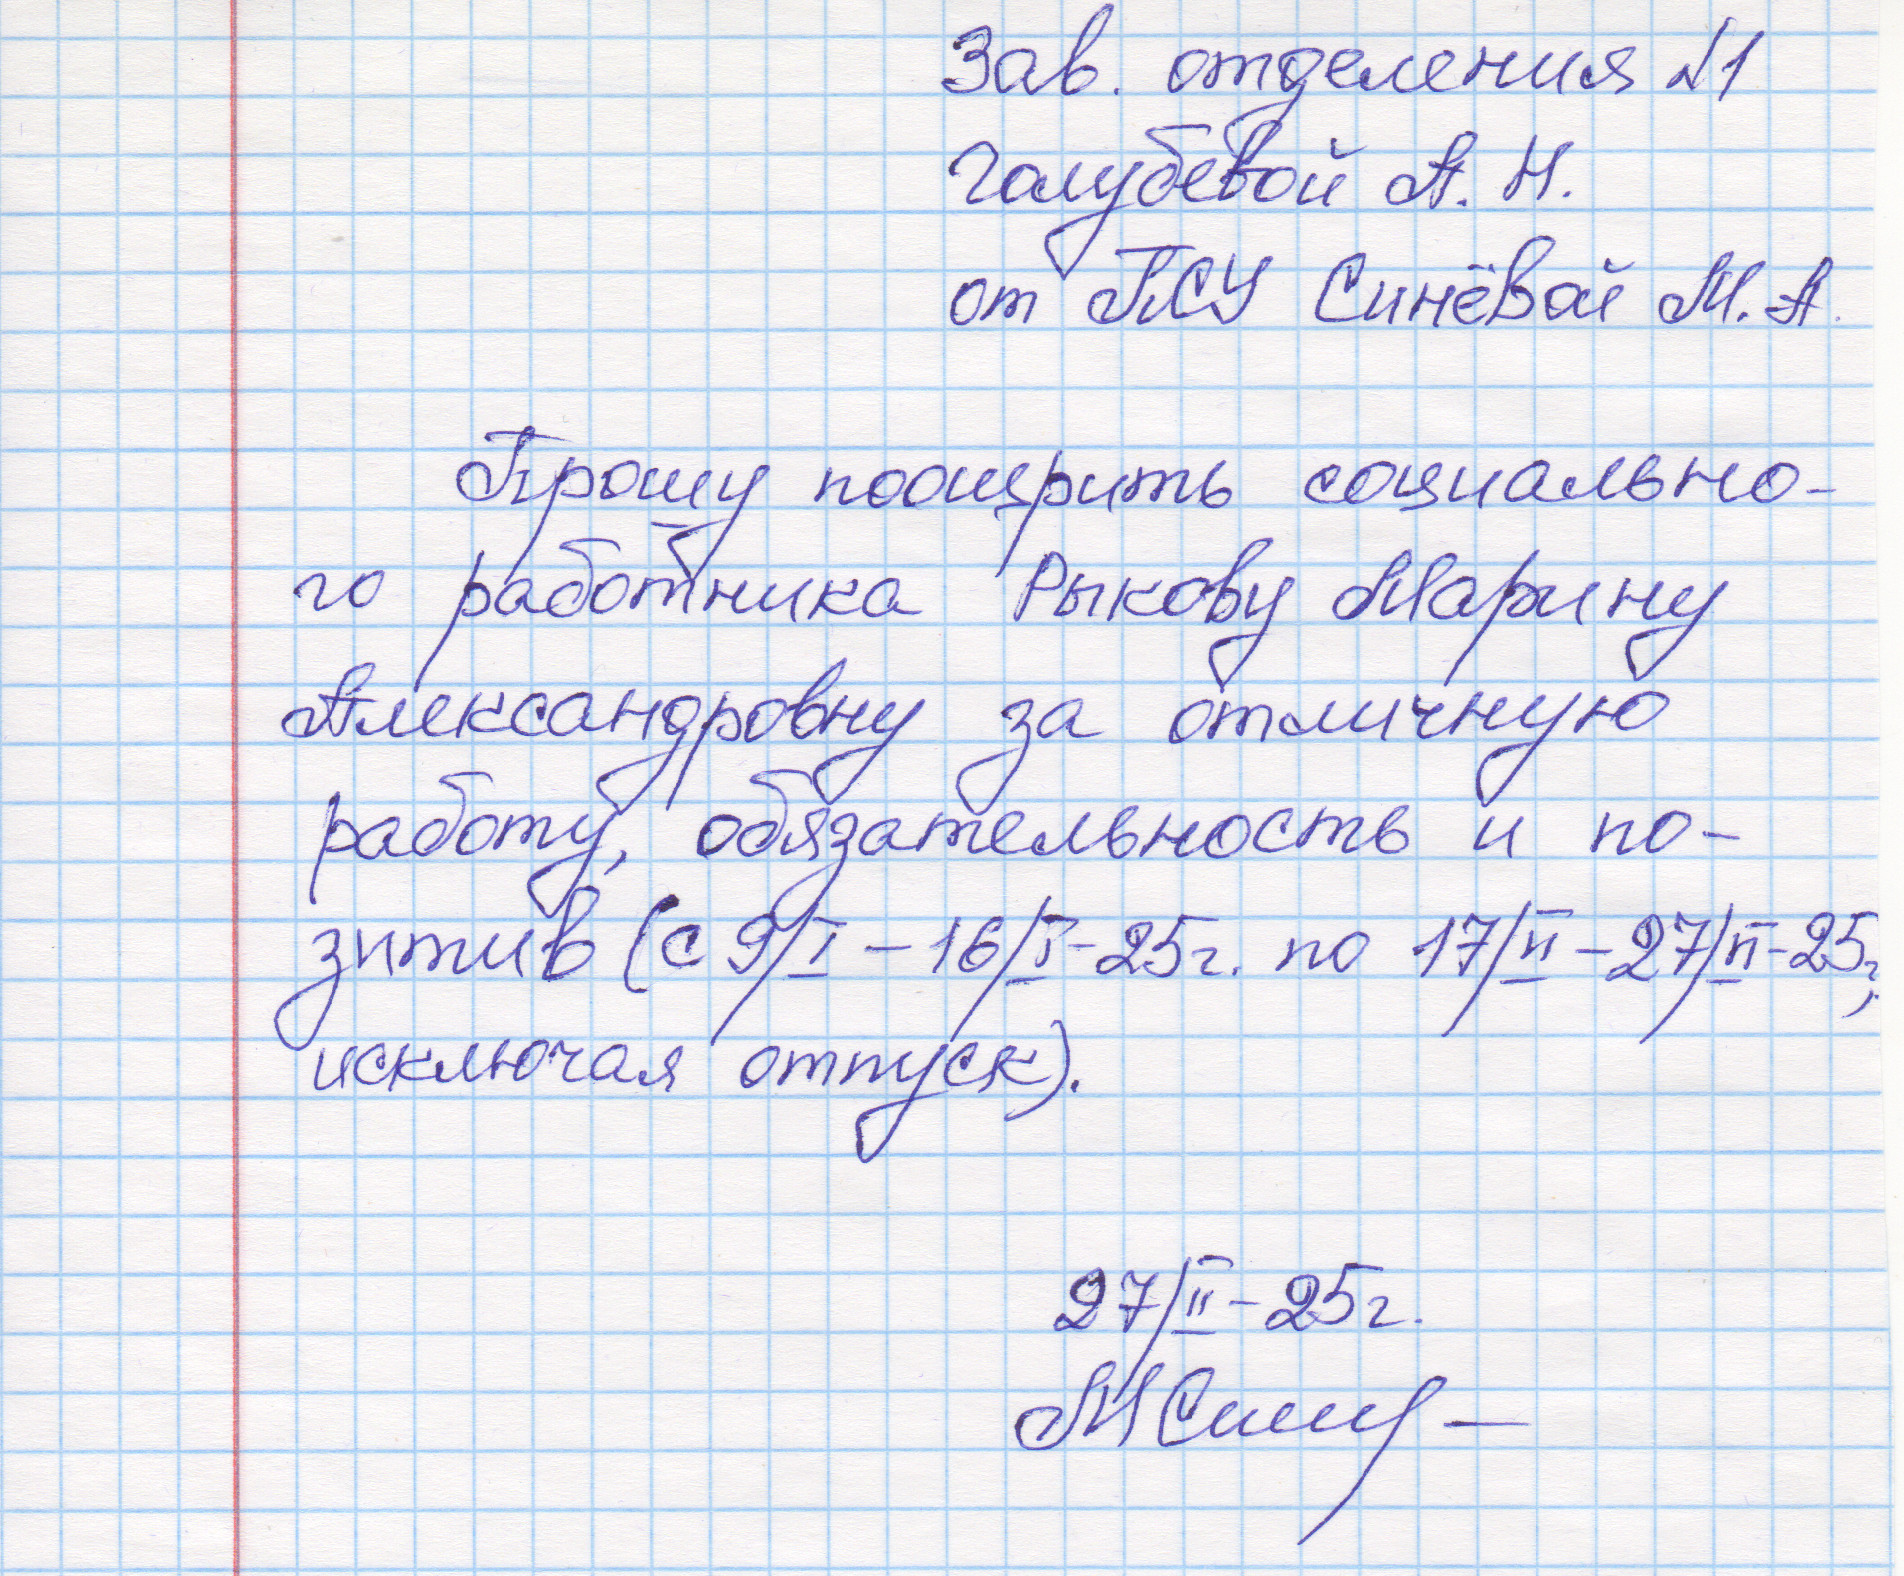 Зав. отделения №1
Голубевой А. Н.
от ПСУ Синёвой М. А.
Прошу поощрить социально-
го работника Рыкову Марину
Александровну за отличную
работу, обязательность и по-
зитив (с 9/I – 16/I - 25г. по 17/II – 27/II - 25г,
исключая отпуск).
27/II - 25г.